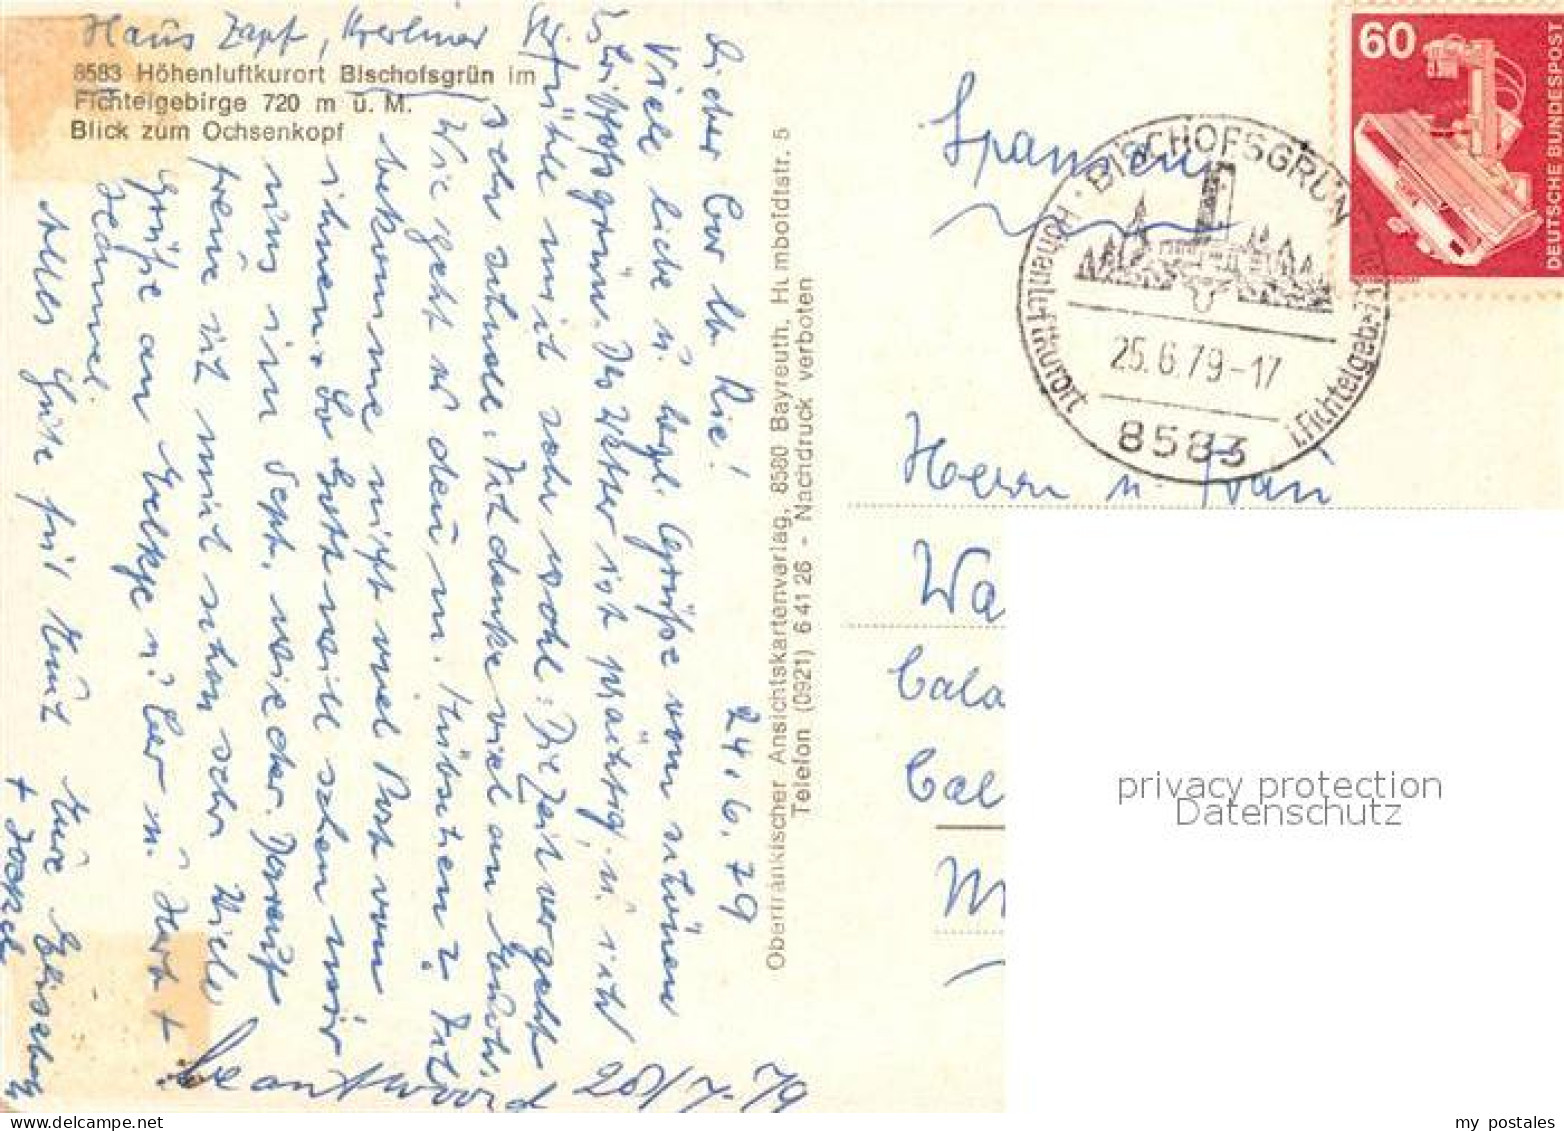 Haus Zapf,
8583 Höhenluftkurort Bischofsgrün im
Fichtelgebirge 720 m ü. M.
Blick zum Ochsenkopf
24.6.79
Lieber Cor u. Rie!
Viele liebe u. herzl. Grüße vom schönen
Bischofsgrün. Das Wetter ist prächtig u. ich
fühle mich sehr wohl. Die Zeit vergeht
sehr schnell. Ich denke viel an Euch.
Wie geht es denn
bekomme nicht viel Post von
ihnen. So Gott will sehen wir
uns im Sept. wieder. Darauf
freue ich mich schon sehr. Viele
Grüße an u. Cor u.
Alles Gute für Euch Eure
+ Joseph
beantwoord 28/7-79
Oberfränkischer Ansichtskartenverlag, 8580 Bayreuth, Humboldtstr. 5
Telefon (0921) 6 41 26 - Nachdruck verboten
60
DEUTSCHE BUNDESPOST
BISCHOFSGRÜN
Höhenluftkurort
i. Fichtelgebirge
25.6.79-17
8583
Spanien
Herrn u. Frau
Wa
Cala
Cal
M
privacy protection
Datenschutz
my postales